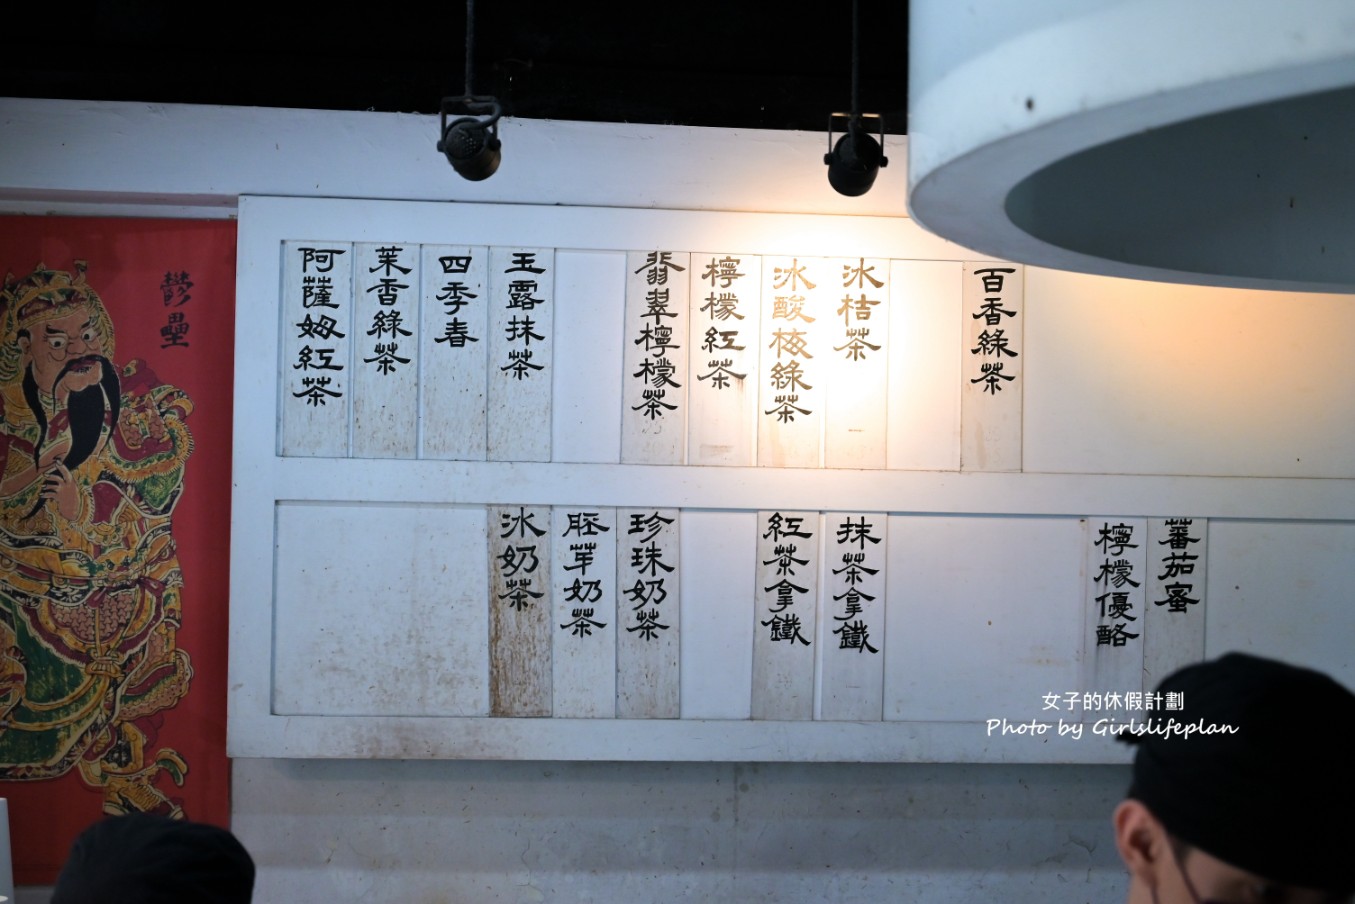 鬱壘
阿薩姆紅茶
茉香綠茶
四季春
玉露抹茶
翡翠檸檬茶
檸檬紅茶
冰酸梅綠茶
冰桔茶
百香綠茶
冰奶茶
胚芽奶茶
珍珠奶茶
紅茶拿鐵
抹茶拿鐵
檸檬優酪
蕃茄蜜
女子的休假計劃
Photo by Girlslifeplan